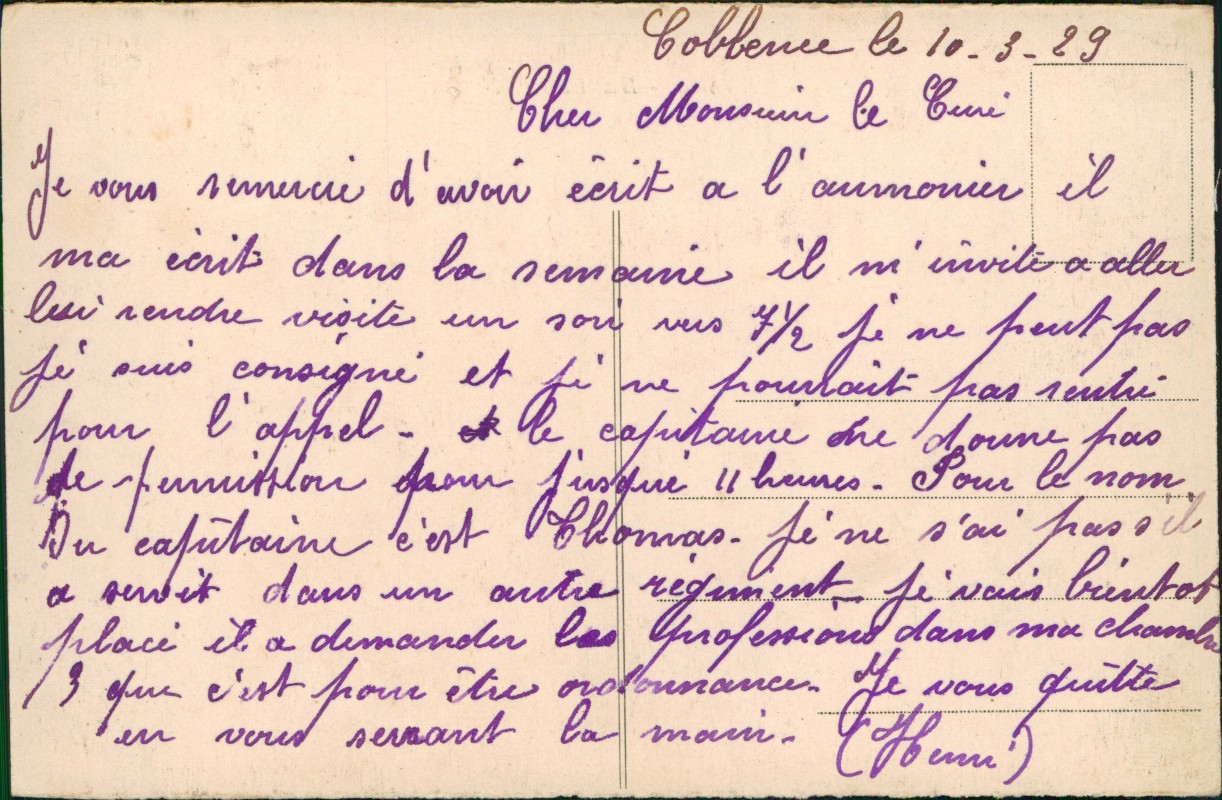 Coblence le 10-3-29
Cher Monsieur le Curé
Je vous remercie d'avoir écrit a l'aumonier il
ma écrit dans la semaine il m'invite a aller
lui rendre visite un soir vers 7 1/2 je ne peut pas
je suis consigné et je ne pourrait pas rentré
pour l'appel - le capitaine ne donne pas
de permission pour jusque 11 heures - Pour le nom
Du capitaine c'est Thomas - je ne s'ai pas s'il
a servit dans un autre régiment - je vais bientot
placé il a demander les professions dans ma chambre
3 que c'est pour être ordonnance - Je vous quitte
en vous serrant la main - (Henri)